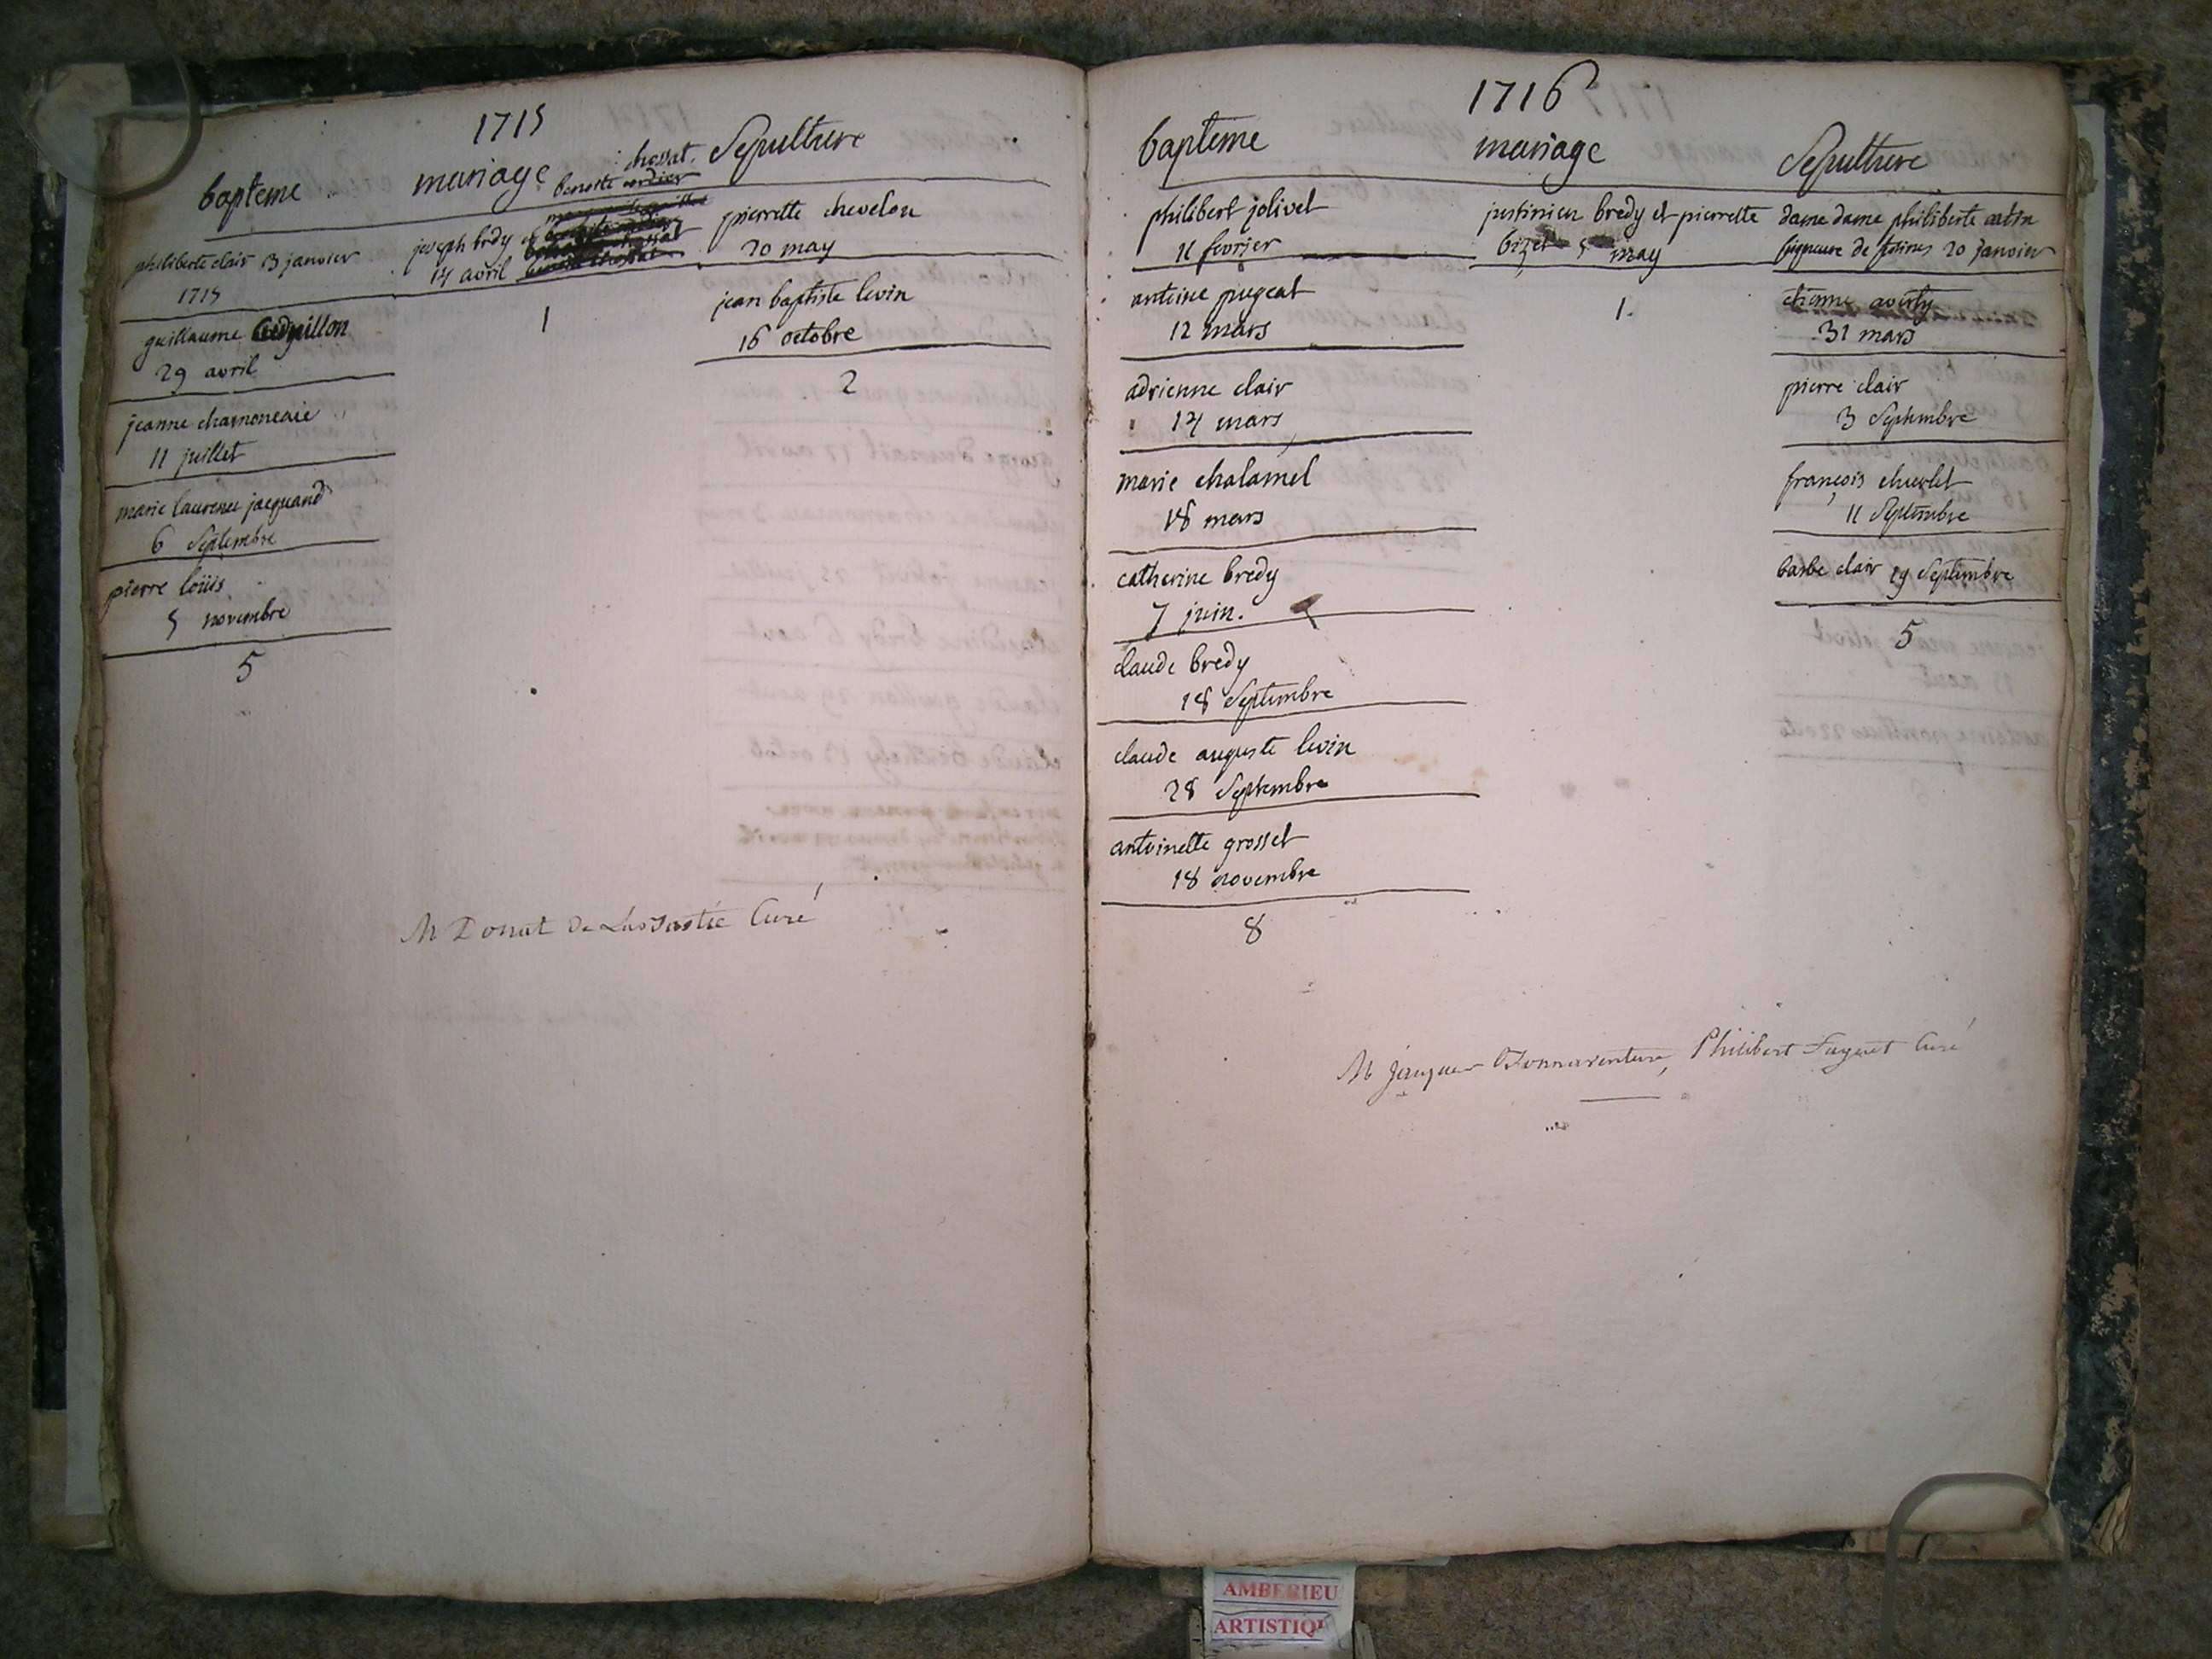 1715
bapteme
philiberte clair 13 janvier
1715
guillaume
29 avril
jeanne chamoneaie
11 juillet
marie laurence jacquand
6 Septembre
pierre loüis
5 novembre
5
mariage
chossat.
benoite cordier
joseph brdy et
14 avril
1
Sepulture
pierrette chevelon
20 may
jean baptiste levin
16 octobre
2
M Donat De Curé
1716
bapteme
philibert jolivet
11 fevrier
antoine pugeat
12 mars
adrienne clair
14 mars
marie chalamel
18 mars
catherine bredy
7 juin.
claude bredy
18 Septembre
claude auguste levin
28 Septembre
antoinette grosset
18 novembre
8
mariage
justinien bredy et pierrette
bizet 5 may
1.
Sepulture
dame dame philiberte
de 20 janvier
etienne
31 mars
pierre clair
3 Septembre
françois
11 Septembre
barbe clair 29 Septembre
5
M jacques Bonnaventure, Philibert Curé
AMBERIEU
ARTISTIQ